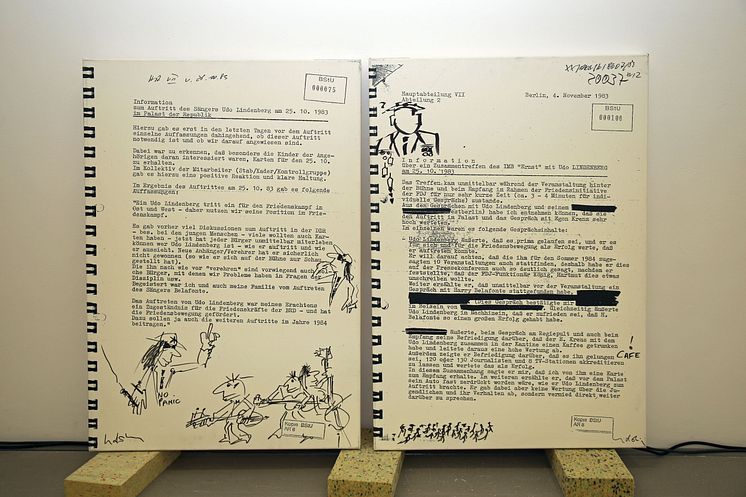 BStU
000075
Information
zum Auftritt des Sängers Udo Lindenberg am 25. 10. 1983
im Palast der Republik
Hierzu gab es erst in den letzten Tagen vor dem Auftritt
einzelne Auffassungen dahingehend, ob dieser Auftritt
notwendig ist und ob wir darauf angewiesen sind.
Dabei war zu erkennen, daß besonders die Kinder der Ange-
hörigen daran interessiert waren, Karten für den 25. 10.
zu erhalten.
Im Kollektiv der Mitarbeiter (Stab/Kader/Kontrollgruppe)
gab es hierzu eine positive Reaktion und klare Haltung.
Im Ergebnis des Auftrittes am 25. 10. 83 gab es folgende
Auffassungen:
"Ein Udo Lindenberg tritt ein für den Friedenskampf in
Ost und West - daher nutzen wir seine Position im Frie-
denskampf.
Es gab vorher viel Diskussionen zum Auftritt in der DDR
- bes. bei den jungen Menschen - viele wollten auch Kar-
ten haben - jetzt hat jeder Bürger unmittelbar miterleben
können wer Udo Lindenberg ist - wie er auftritt und wie
er aussieht. Neue Anhänger/Verehrer hat er sicherlich
nicht gewonnen (so wie er sich auf der Bühne zur Schau
gestellt hat).
Die ihn nach wie vor "verehren" sind vorwiegend auch sol-
che Bürger, mit denen wir Probleme haben in Fragen der
Disziplin usw.
Begeistert war ich und auch meine Familie vom Auftreten
des Sängers Belafonte.
Das Auftreten von Udo Lindenberg war meines Erachtens
ein Zugeständnis für die Friedenskräfte der BRD - und hat
die Friedensbewegung gefördert.
Dazu sollen ja auch die weiteren Auftritte im Jahre 1984
beitragen."
NO
PANIC
Kopie BStU
AR 8
Hauptabteilung VII
Abteilung 2
Berlin, 4. November 1983
BStU
000100
Information
über ein Zusammentreffen des IMB "Ernst" mit Udo LINDENBERG
am 25. 10. 1983
Das Treffen kam unmittelbar während der Veranstaltung hinter
der Bühne und beim Empfang im Rahmen der Friedensinitiative
der FDJ nur für sehr kurze Zeit (ca. 3 - 4 Minuten für indi-
viduelle Gespräche) zustande.
Aus den Gesprächen mit Udo Lindenberg und seinem
(Westberlin) habe ich entnehmen können, daß sie
den Auftritt im Palast und das Gespräch mit Egon Krenz sehr
hoch werteten.
Im einzelnen waren es folgende Gesprächsinhalte:
- Udo Lindenberg äußerte, daß es prima gelaufen sei, und er es
für sich und für die Friedensbewegung als Erfolg werte, daß
er auftreten konnte.
Er will darauf achten, daß die ihm für den Sommer 1984 zuge-
sagten 10 Veranstaltungen auch stattfinden, deshalb habe er dies
auf der Pressekonferenz auch so deutlich gesagt, nachdem er
feststellte, daß der FDJ-Funktionär König, Hartmut dies etwas
umschreiben wollte.
Weiter erzählte er, daß unmittelbar vor der Veranstaltung ein
Gespräch mit Harry Belafonte stattgefunden habe.
(Dies Gespräch bestätigte mir
im Beisein von
Gleichzeitig äußerte
Udo Lindenberg im Nachhinein, daß er zufrieden sei, daß H.
Belafonte so einen großen Erfolg gehabt habe.
äußerte, beim Gespräch am Regiepult und auch beim
Empfang seine Befriedigung darüber, daß der E. Krenz mit dem
Udo Lindenberg zusammen in der Kantine einen Kaffee getrunken
habe und leitete daraus eine hohe Wertung ab.
Außerdem zeigte er Befriedigung darüber, daß es ihm gelungen
sei, 120 oder 130 Journalisten und 8 TV-Stationen akkreditieren
zu lassen und wertete das als Erfolg.
In diesem Zusammenhang sagte er mir, daß ich von ihm eine Karte
zum Empfang erhalte. Im weiteren erzählte er, daß vor dem Palast
sein Auto fast zerdrückt worden wäre, wie er Udo Lindenberg zum
Auftritt brachte. Er gab dabei aber keine Wertung über die Ju-
gendlichen und ihr Verhalten ab, sondern vermied direkt weiter
darüber zu sprechen.
!
CAFE
Kopie BStU
AR 8